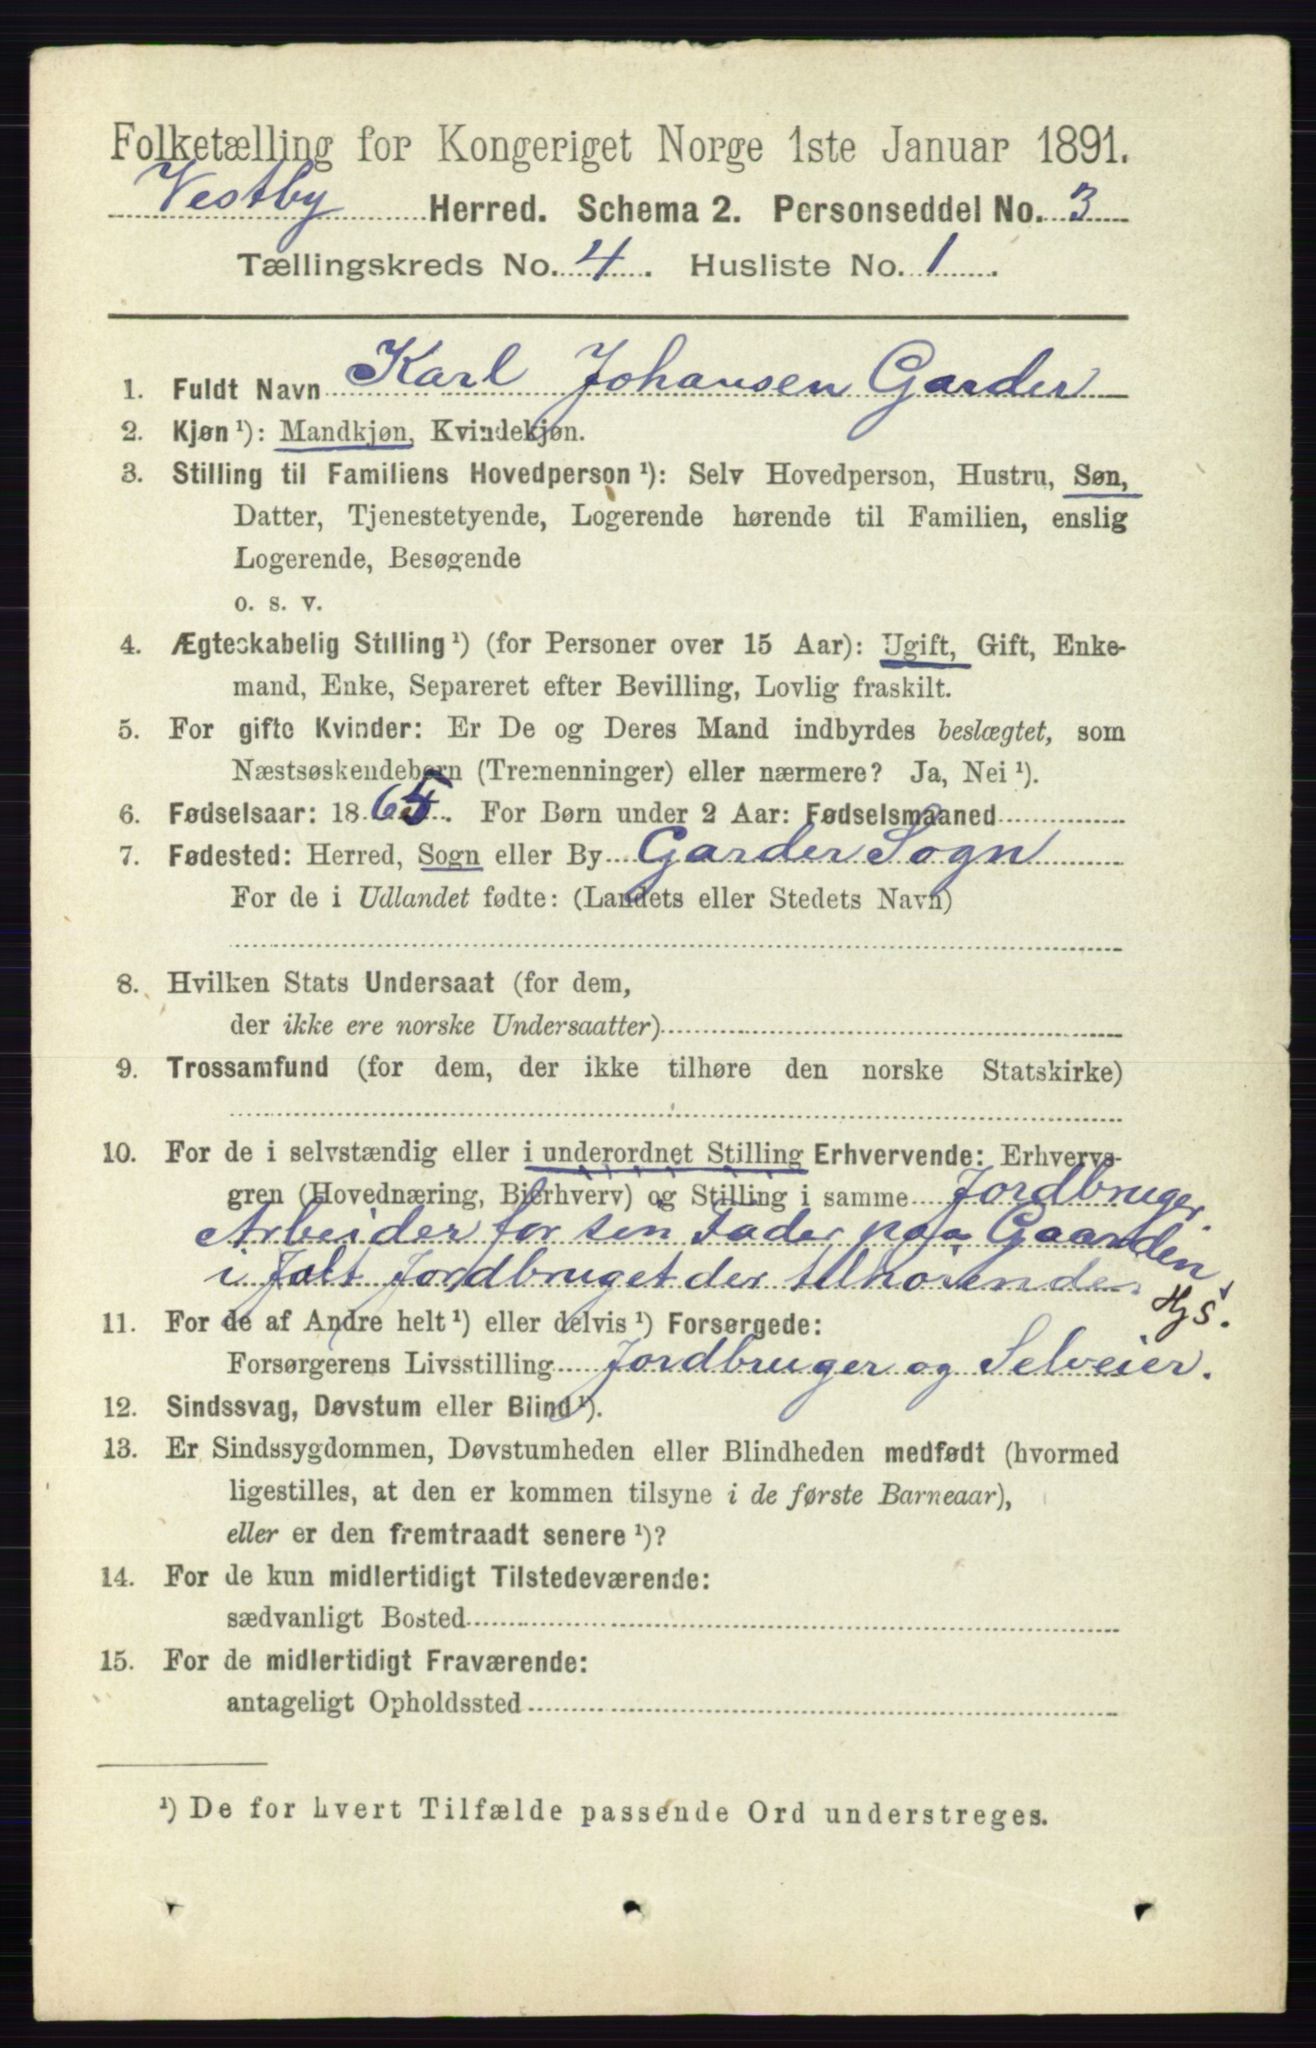 Folketælling for Kongeriget Norge 1ste Januar 1891.
Vestby Herred. Schema 2. Personseddel No. 3
Tællingskreds No. 4. Husliste No. 1.
1. Fuldt Navn Karl Johansen Garder
2. Kjøn ¹): Mandkjøn, Kvindekjøn.
3. Stilling til Familiens Hovedperson ¹): Selv Hovedperson, Hustru, Søn,
Datter, Tjenestetyende, Logerende hørende til Familien, enslig
Logerende, Besøgende
o. s. v.
4. Ægteskabelig Stilling ¹) (for Personer over 15 Aar): Ugift, Gift, Enke-
mand, Enke, Separeret efter Bevilling, Lovlig fraskilt.
5. For gifte Kvinder: Er De og Deres Mand indbyrdes beslægtet, som
Næstsøskendebørn (Tremenninger) eller nærmere? Ja, Nei ¹).
6. Fødselsaar: 1865. For Børn under 2 Aar: Fødselsmaaned
7. Fødested: Herred, Sogn eller By Garder Sogn
For de i Udlandet fødte: (Landets eller Stedets Navn)
8. Hvilken Stats Undersaat (for dem,
der ikke ere norske Undersaatter)
9. Trossamfund (for dem, der ikke tilhøre den norske Statskirke)
10. For de i selvstændig eller i underordnet Stilling Erhvervende: Erhvervs-
gren (Hovednæring, Bierhverv) og Stilling i samme Jordbruger,
Arbeider for sin Fader paa Gaarden
i Jordbruget der tilhørende.
HjS.
11. For de af Andre helt ¹) eller delvis ¹) Forsørgede:
Forsørgerens Livsstilling Jordbruger og Selveier.
12. Sindssvag, Døvstum eller Blind ¹).
13. Er Sindssygdommen, Døvstumheden eller Blindheden medfødt (hvormed
ligestilles, at den er kommen tilsyne i de første Barneaar),
eller er den fremtraadt senere ¹)?
14. For de kun midlertidigt Tilstedeværende:
sædvanligt Bosted
15. For de midlertidigt Fraværende:
antageligt Opholdssted
¹) De for hvert Tilfælde passende Ord understreges.